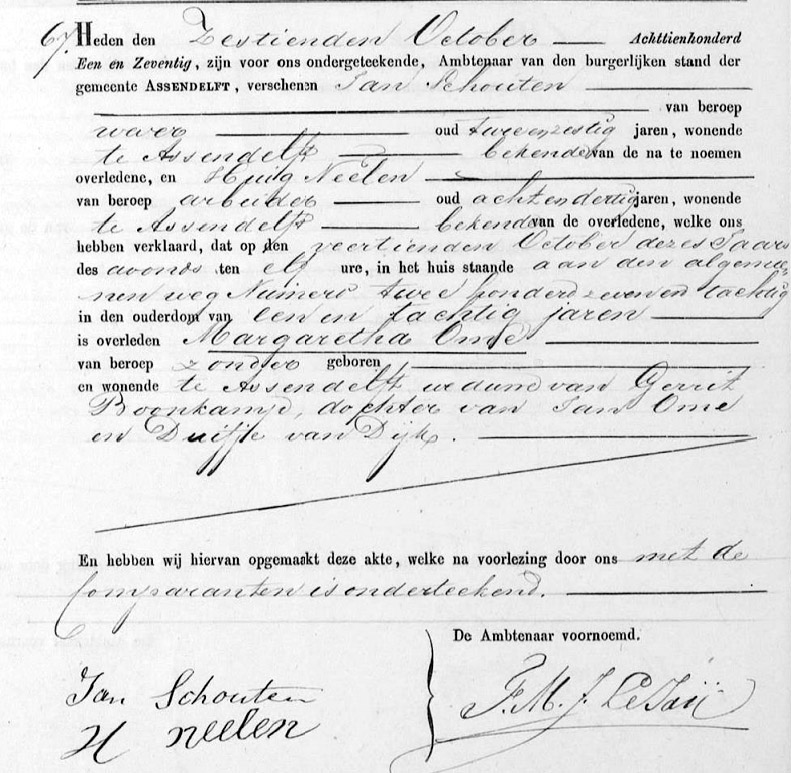 67. Heden den Zestienden October Achttienhonderd
Een en Zeventig, zijn voor ons ondergeteekende, Ambtenaar van den burgerlijken stand der
gemeente ASSENDELFT, verschenen Jan Schouten
van beroep
wever oud twee en zestig jaren, wonende
te Assendelft bekende van de na te noemen
overledene, en Huig Neelen
van beroep arbeider oud acht en dertig jaren, wonende
te Assendelft bekende van de overledene, welke ons
hebben verklaard, dat op den veertienden October dezes Jaars
des avonds ten elf ure, in het huis staande aan den algemee-
nen weg Numero twee honderd zeven en tachtig
in den ouderdom van een en tachtig jaren
is overleden Margaretha Ome
van beroep zonder geboren
en wonende te Assendelft weduwe van Gerrit
Boonkamp, dochter van Jan Ome
en Duifje van Dijk.
En hebben wij hiervan opgemaakt deze akte, welke na voorlezing door ons met de
Comparanten is onderteekend.
De Ambtenaar voornoemd.
Jan Schouten
H neelen
F. M. J.